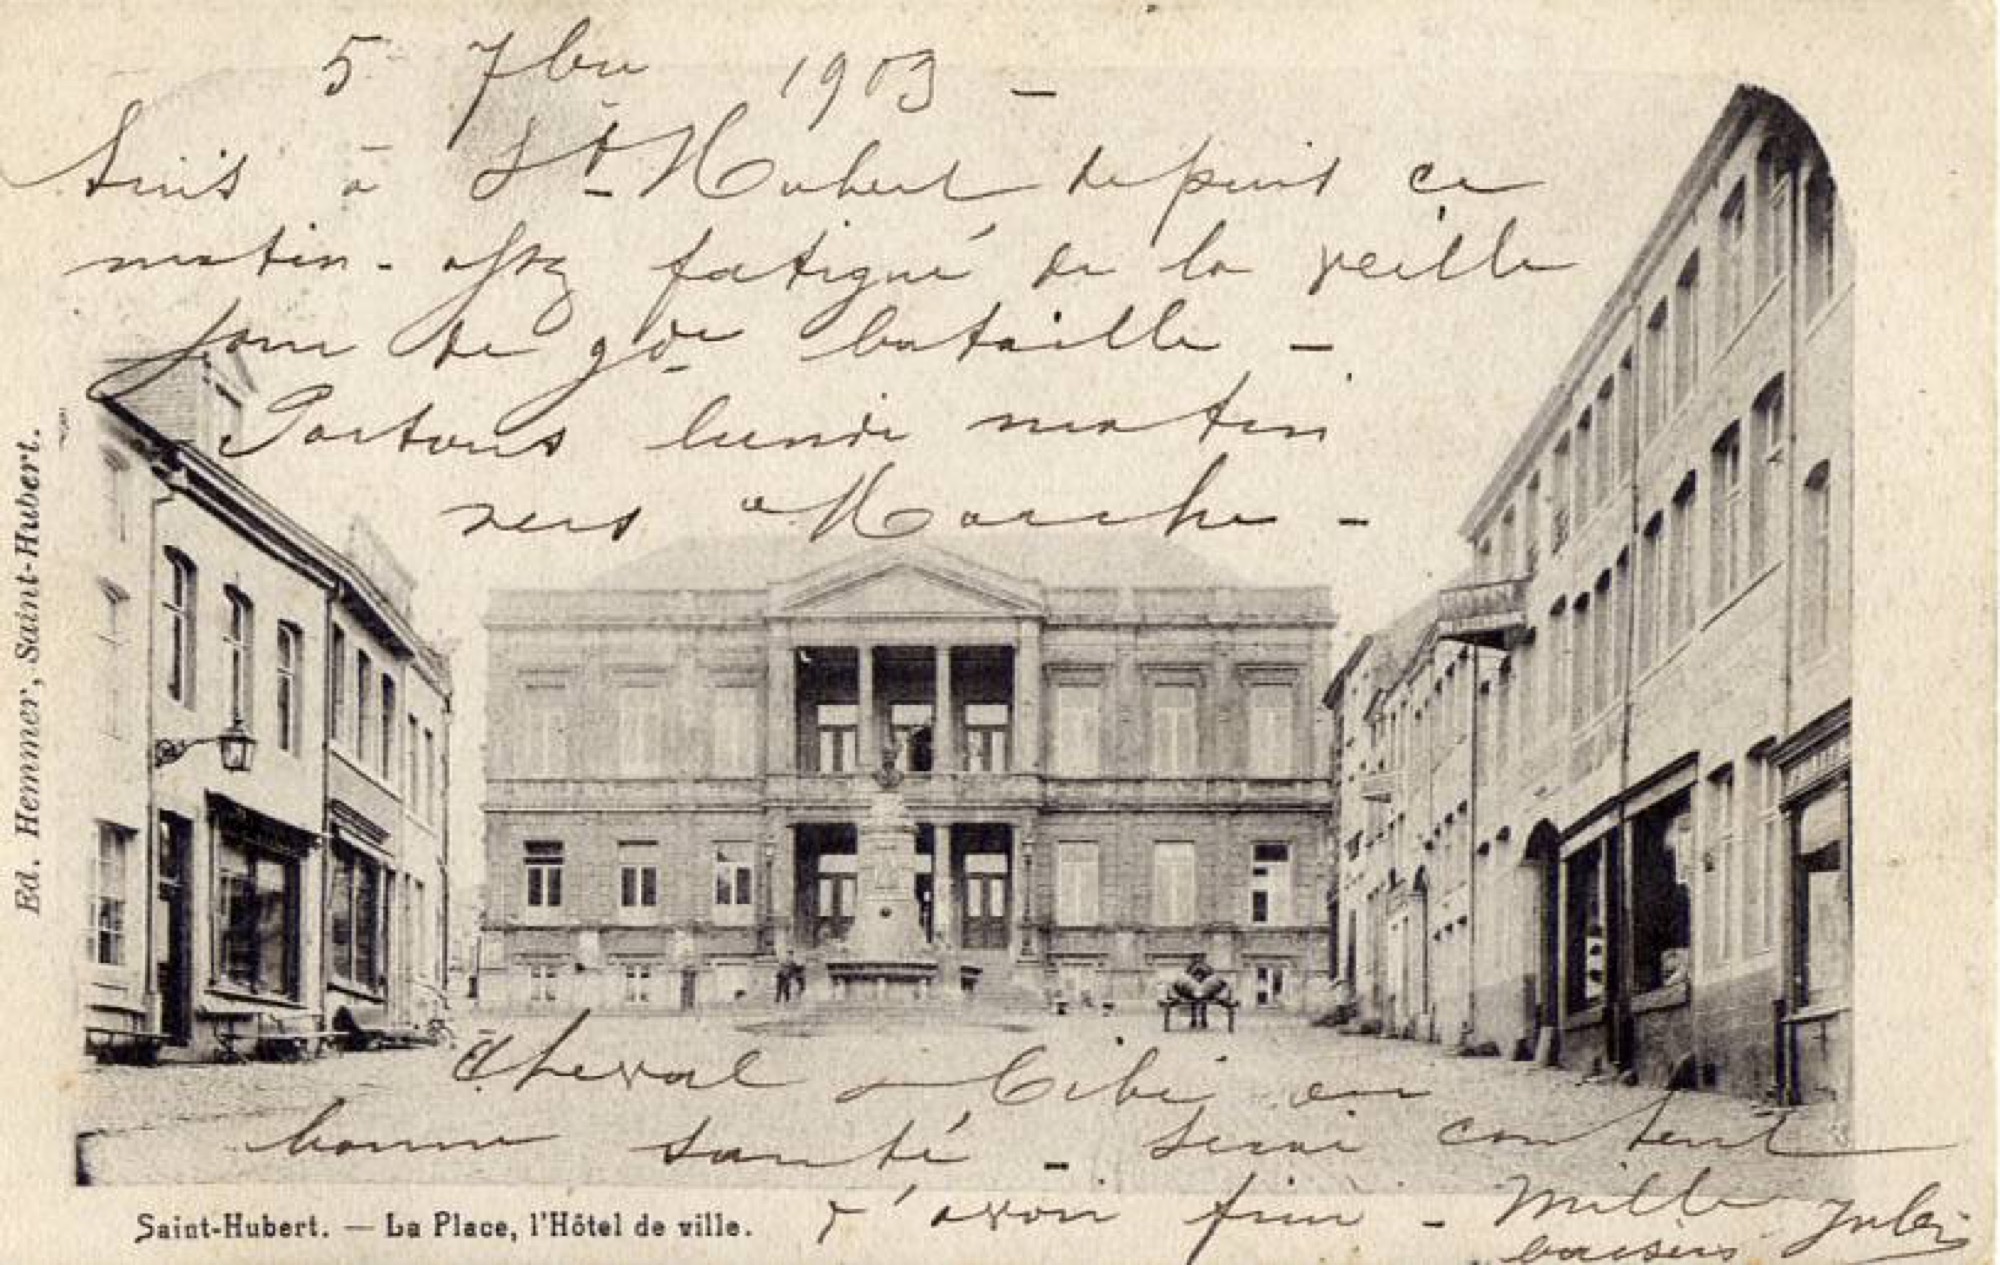 5 7bre 1903 -
Suis à St Hubert depuis ce
matin - assez fatigué de la veille
jour de gde bataille -
Partons lundi matin
vers Marche -
Cheval Bibi en
bonne santé - serai content
d'avoir fini - Mille
baisers Jules
Saint-Hubert. — La Place, l'Hôtel de ville.
Ed. Hemmer, Saint-Hubert.